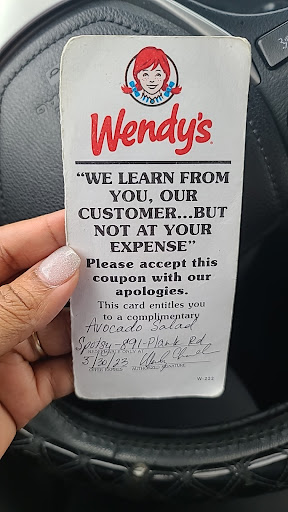 Wendy's
"WE LEARN FROM
YOU, OUR
CUSTOMER...BUT
NOT AT YOUR
EXPENSE"
Please accept this
coupon with our
apologies.
This card entitles you
to a complimentary
Avocado Salad
Spotsy-891-Plank Rd
5/30/23
OFFER EXPIRES AUTHORIZED SIGNATURE
W-222